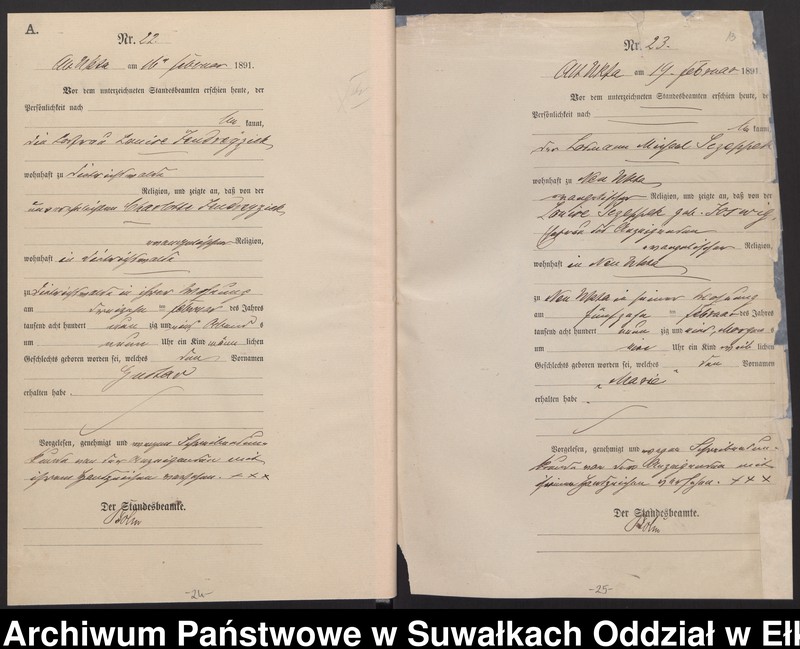 A.
Nr. 22.
Alt Ukta am 16ten Februar 1891.
Vor dem unterzeichneten Standesbeamten erschien heute, der
Persönlichkeit nach
kannt,
die
wohnhaft zu
Religion, und zeigte an, daß von der
unverehelichten Charlotte
evangelischer Religion,
wohnhaft in
zu in ihrer Wohnung
am dreizehnten Februar des Jahres
tausend acht hundert neunzig und eins Abends
um neun Uhr ein Kind männlichen
Geschlechts geboren worden sei, welches den Vornamen
Gustav
erhalten habe.
Vorgelesen, genehmigt und wegen Schreibensun-
kunde von der Anzeigenden mit
ihrem Handzeichen versehen. + + +
Der Standesbeamte.
Bohn
-24-
Nr. 23.
Alt Ukta am 19. Februar 1891
Vor dem unterzeichneten Standesbeamten erschien heute, de
Persönlichkeit nach
kannt
der Losmann Michael Sczeppek
wohnhaft zu Neu Ukta
evangelischer Religion, und zeigte an, daß von der
Louise Sczeppek geb.
Ehefrau des Anzeigenden
evangelischer Religion,
wohnhaft in Neu Ukta
zu Neu Ukta in seiner Wohnung
am fünfzehn ten Februar des Jahres
tausend acht hundert neun zig und eins, Morgens
um vier Uhr ein Kind weib lichen
Geschlechts geboren worden sei, welches den Vornamen
„Marie"
erhalten habe
Vorgelesen, genehmigt und wegen Schreibensun-
kunde von dem Anzeigenden mit
seinem Handzeichen versehen. + + +
Der Standesbeamte.
Bohn
-25-
Archiwum Państwowe w Suwałkach Oddział w Ełk